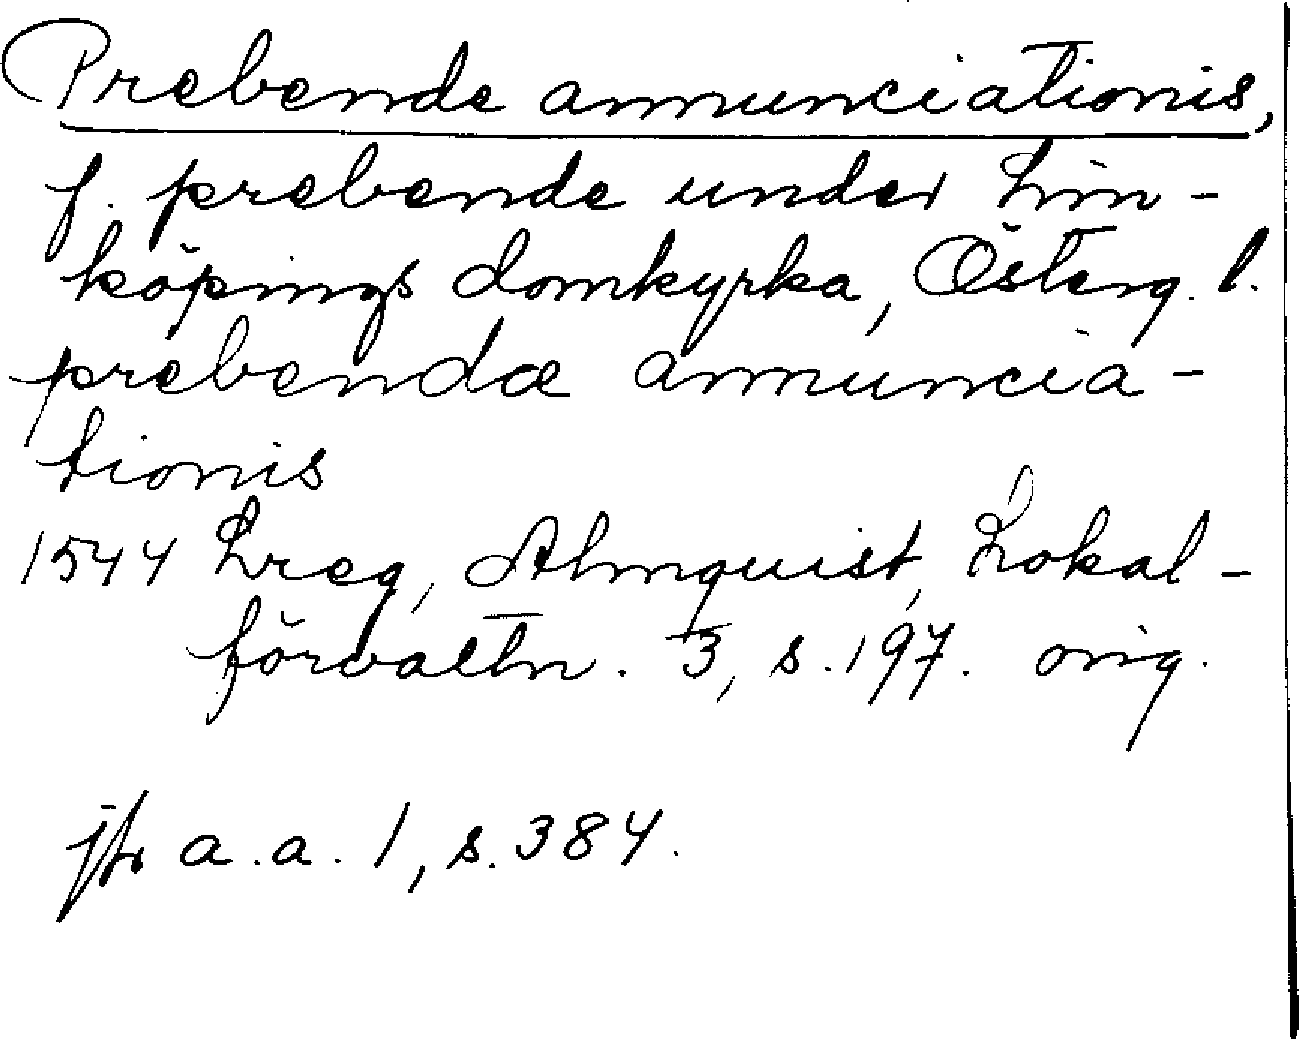 Prebende annunciationis,
f. prebende under Lin-
köpings domkyrka, Österg. l.
prebendæ annuncia-
tionis
1544 Lreg, Almquist, Lokal-
förvaltn. 3, s. 197. orig.
jfr a.a. 1, s. 384.